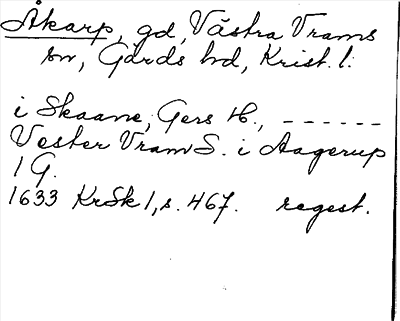 Åkarp, gd, Västra Vrams
sn, Gärds hd, Krist. l.
i Skaane, Gers H., ------
Vester Vram S. i Aagerup
1 G.
1633 KrSk 1, s. 467. regest.